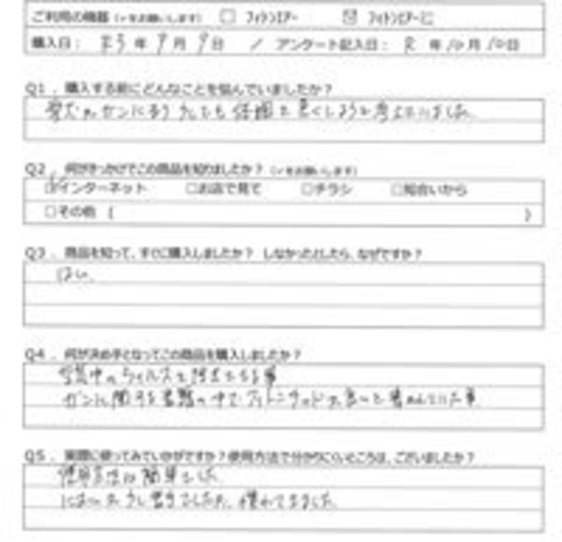 ご利用の機器 (✓をお願いします) □ フィトンエアー ☑ フィトンエアーミニ
購入日: R3 年 9 月 9 日 / アンケート記入日: R 年 10 月 10 日
Q1. 購入する前にどんなことを悩んでいましたか?
愛犬がガンになり 少しでも 環境を良くしようと考えていました。
Q2. 何がきっかけでこの商品を知りましたか? (✓をお願いします)
☑インターネット □お店で見て □チラシ □知合いから
□その他 ( )
Q3. 商品を知って、すぐに購入しましたか? しなかったとしたら、なぜですか?
はい。
Q4. 何が決め手となってこの商品を購入しましたか?
空気中のウィルスを除去できる事
ガンに関する書籍の中で フィトンチッドが良いと書かれていた事
Q5. 実際に使ってみていかがですか?使用方法で分かりにくいところは、ございましたか?
使用方法は簡単でした。
においが少し 気になりましたが、慣れてきました。